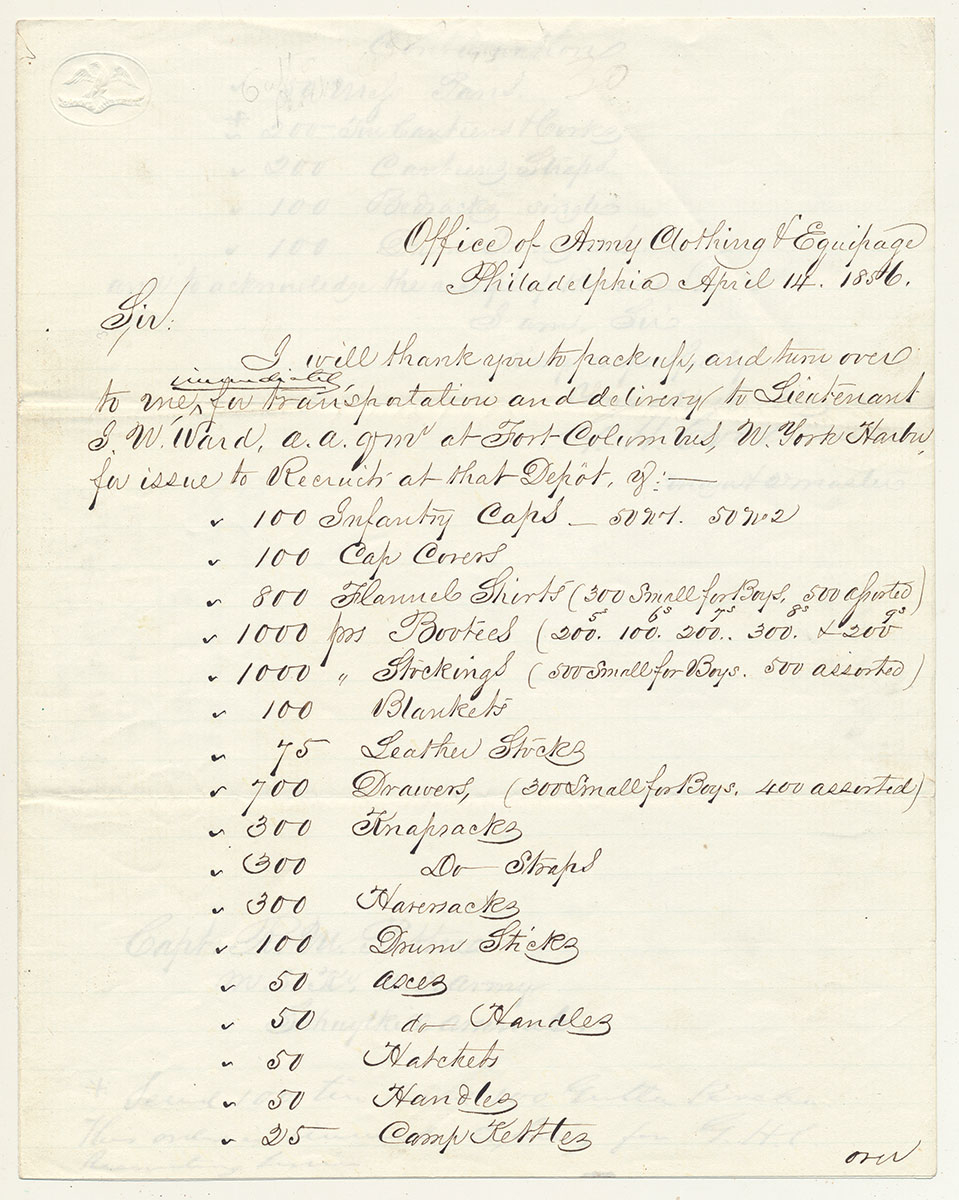 Office of Army Clothing & Equipage
Philadelphia April 14. 1856.
Sir:
I will thank you to pack up, and turn over
immediately
to me, for transportation and delivery to Lieutenant
J. W. Ward, a.a.qmr at Fort Columbus, N. York Harbor,
for issue to Recruits at that Depôt, viz:—
100 Infantry Caps — 50 No 1. 50 No 2
100 Cap Covers
800 Flannel Shirts (300 Small for Boys, 500 assorted)
5s 6s 7s 8s 9s
1000 prs Bootees (200. 100. 200.. 300. & 200
1000 " Stockings (500 Small for Boys. 500 assorted)
100 Blankets
75 Leather Stocks
700 Drawers, (300 Small for Boys. 400 assorted)
300 Knapsacks
300 Do Straps
300 Haversacks
100 Drum Sticks
50 axes
50 do Handles
50 Hatchets
50 Handles
25 Camp Kettles
over